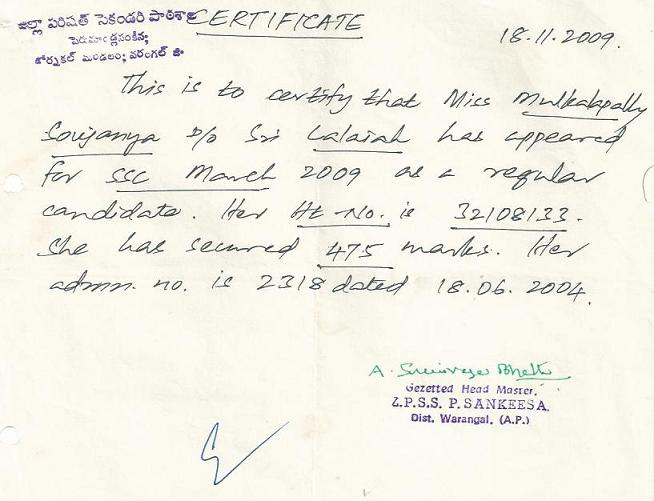 జిల్లా పరిషత్ సెకండరి పాఠశాల
CERTIFICATE
పెరుమాండ్లసంకీస;
18.11.2009.
డోర్నకల్ మండలం; వరంగల్ జి
This is to certify that Miss Mulkalapally
Soujanya D/o Sri Lalaiah has appeared
for SSC March 2009 as a regular
candidate. Her Ht No. is 32108133.
She has secured 475 marks. Her
admn. no. is 2318 dated 18.06.2004.
A. Srinivasa Bhattu
Gezetted Head Master.
Z.P.S.S. P. SANKEESA.
Dist. Warangal. (A.P.)